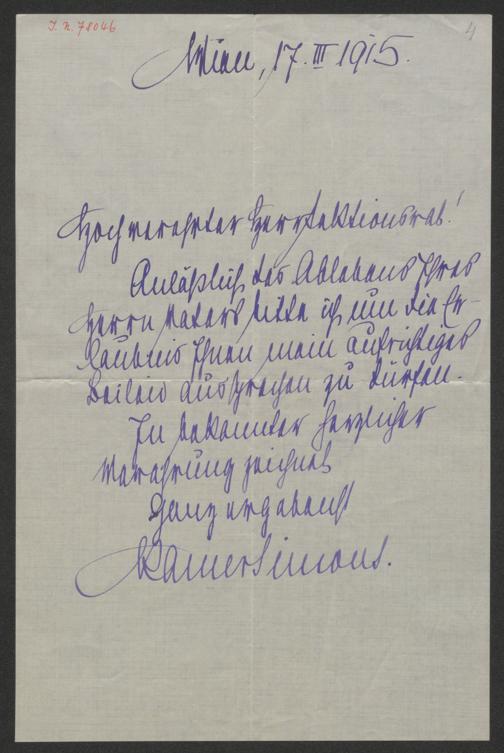 I. N. 78046
4
Wien, 17. III 1915.
Hochverehrter Herr Sektionsrat!
Anläßlich des Ablebens Ihres
Herrn Vaters bitte ich um die Er-
laubnis Ihnen mein aufrichtiges
Beileid aussprechen zu dürfen.
In bekannter herzlicher
Verehrung zeichnet
Ganz ergebenst
Rainer Simons.